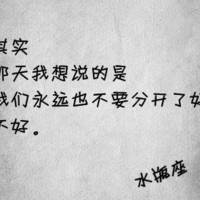 其实
那天我想说的是
我们永远也不要分开了好
不好。
水瓶座